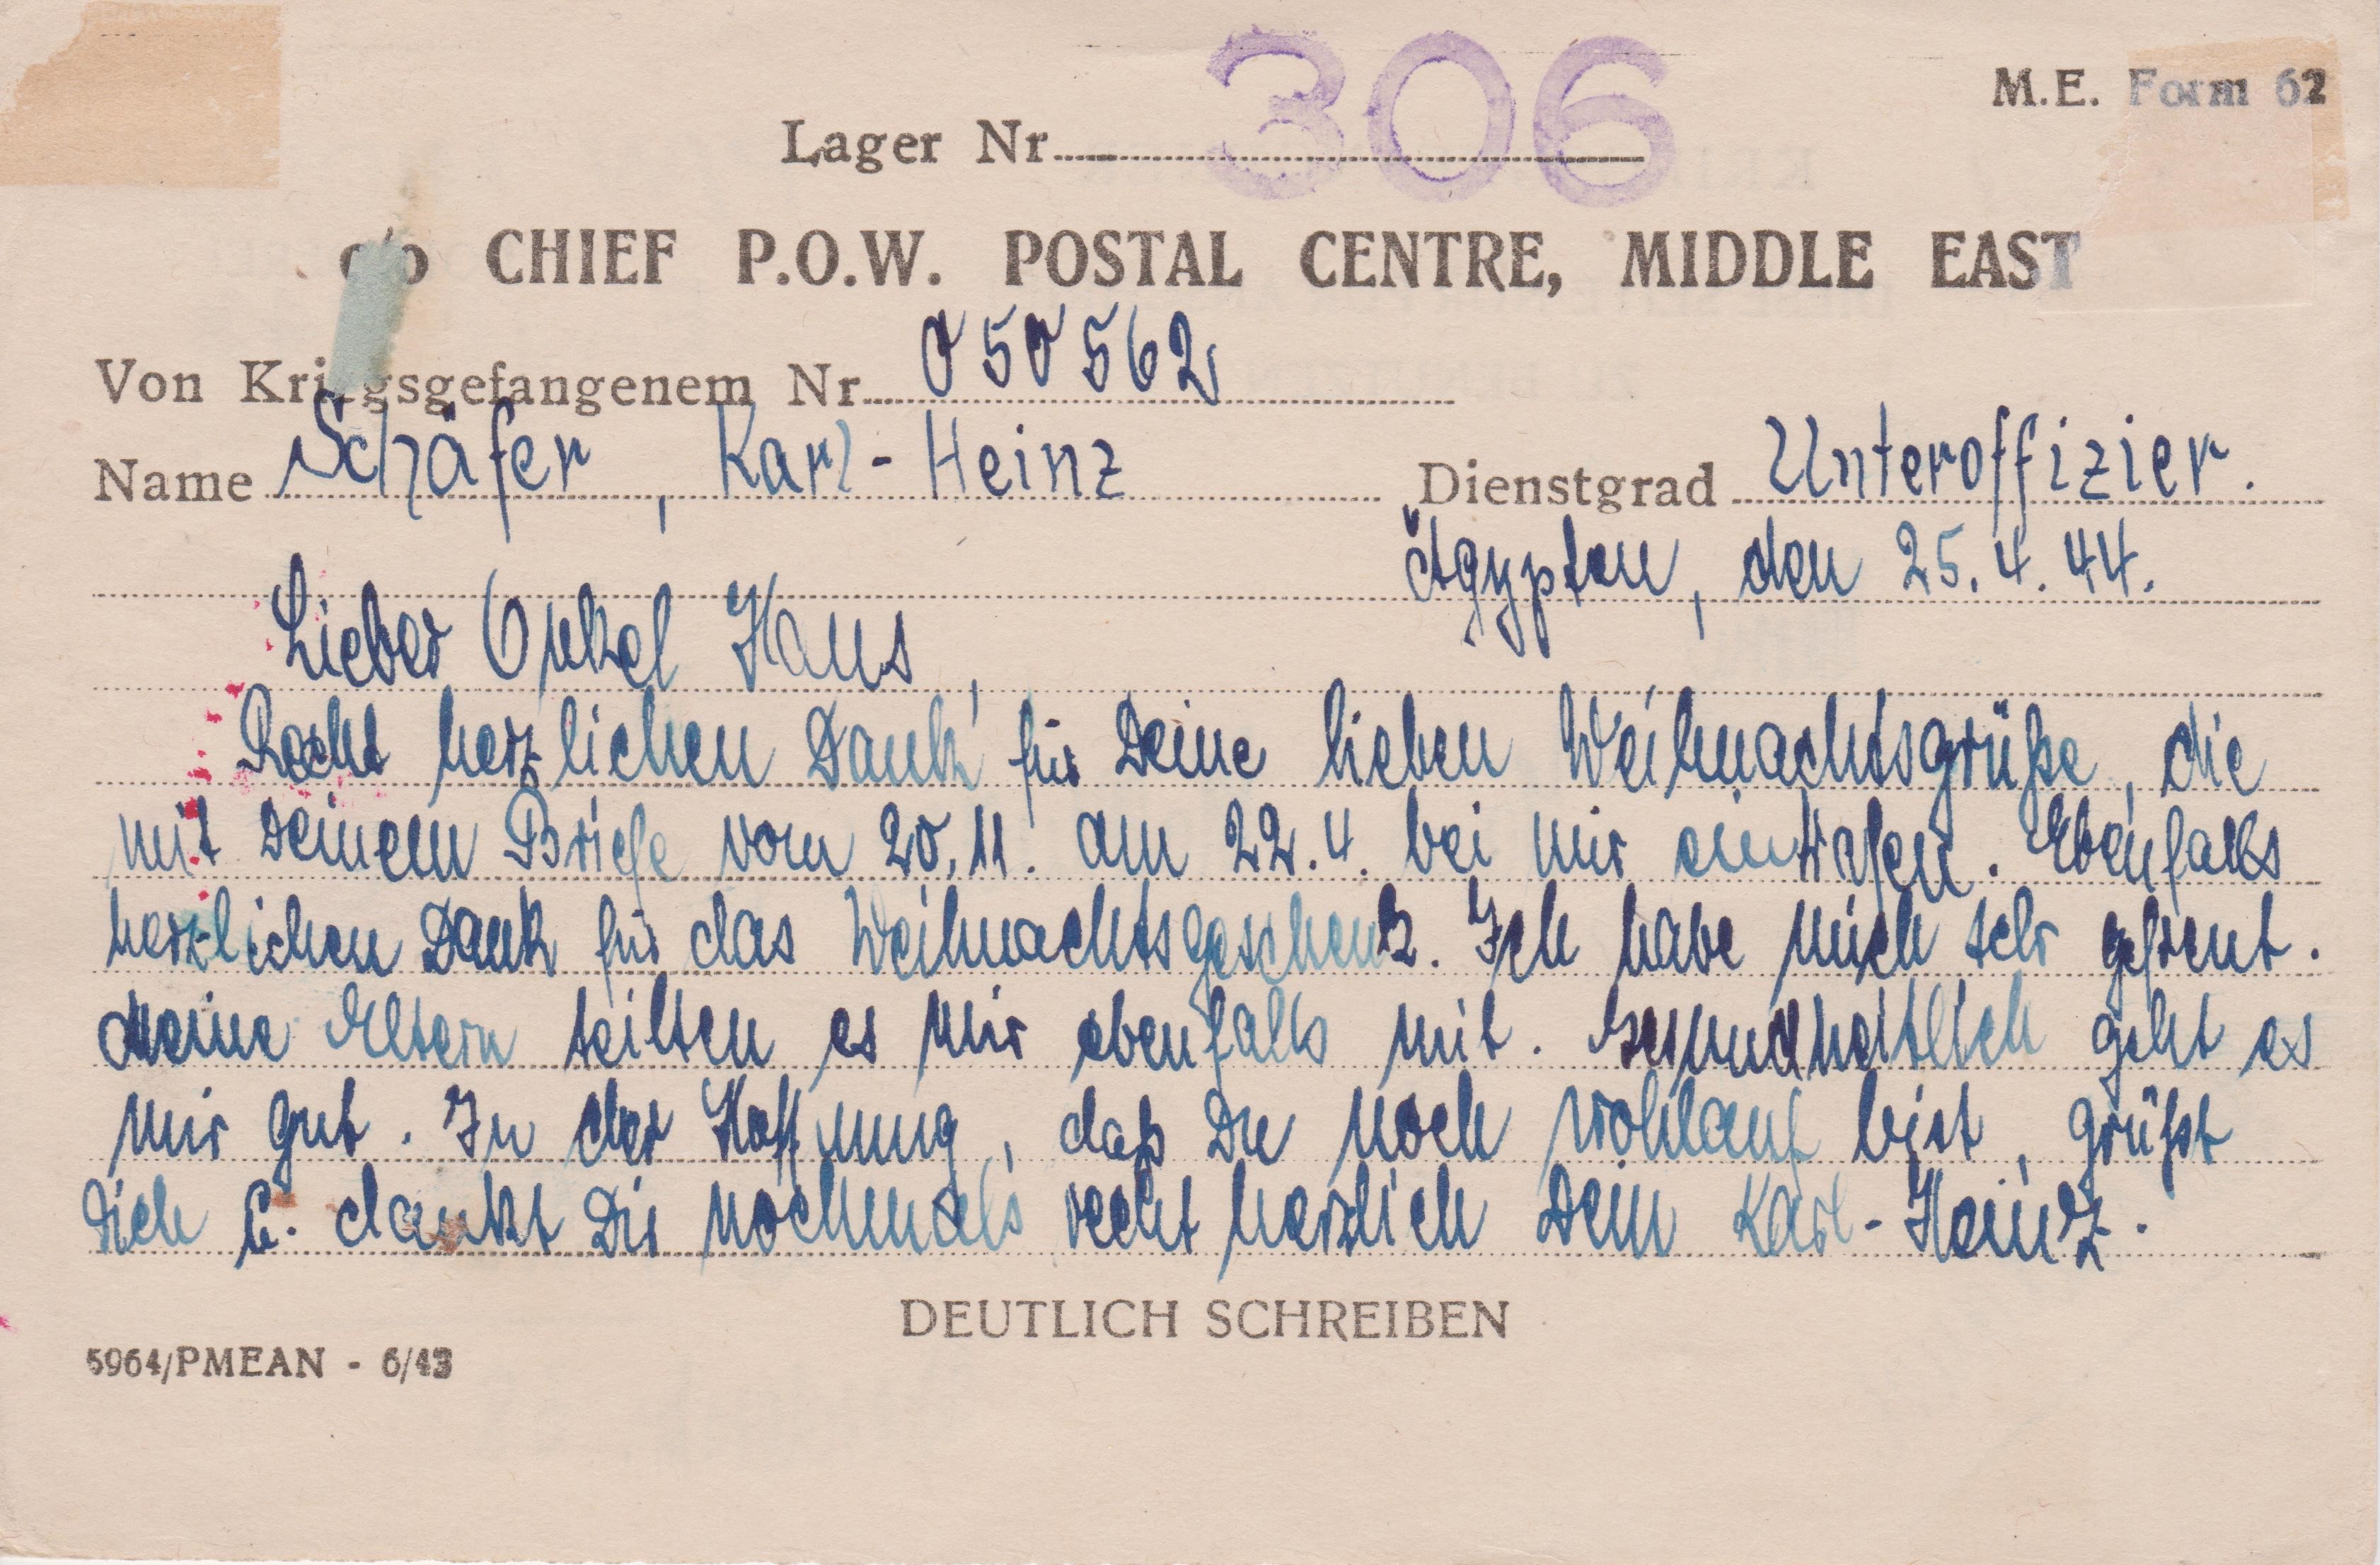 306
M.E. Form 62
Lager Nr
c/o CHIEF P.O.W. POSTAL CENTRE, MIDDLE EAST
Von Kriegsgefangenem Nr. 050562
Name Schäfer, Karl-Heinz Dienstgrad Unteroffizier.
Ägypten, den 25.4.44.
Lieber Onkel Hans,
Recht herzlichen Dank für Deine lieben Weihnachtsgrüße, die
mit Deinem Briefe vom 20.11. am 22.4. bei mir eintrafen. Ebenfalls
herzlichen Dank für das Weihnachtsgeschenk. Ich habe mich sehr gefreut.
Meine Eltern teilten es mir ebenfalls mit. Gesundheitlich geht es
mir gut. In der Hoffnung, daß Du noch wohlauf bist, grüßt
Dich u. dankt Dir nochmals recht herzlich Dein Karl-Heinz.
DEUTLICH SCHREIBEN
5964/PMEAN - 6/43